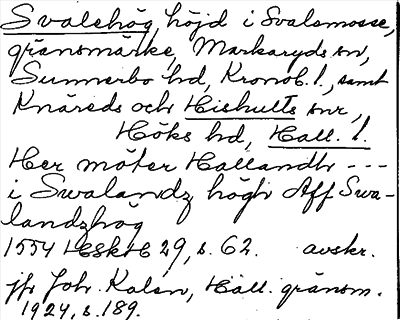 Svalehög, höjd i Svalemosse,
gränsmärke, Markaryds sn,
Sunnerbo hd, Kronob. l., samt
Knäreds och Hishults snr,
Höks hd, Hall. l.
Her möter Hallandh ---
i Swalandz högh Aff Swa-
landzhög
1554 HSkH 29, s. 62. avskr.
jfr Joh. Kalén, Hall. gränsm.
1924, s. 189.